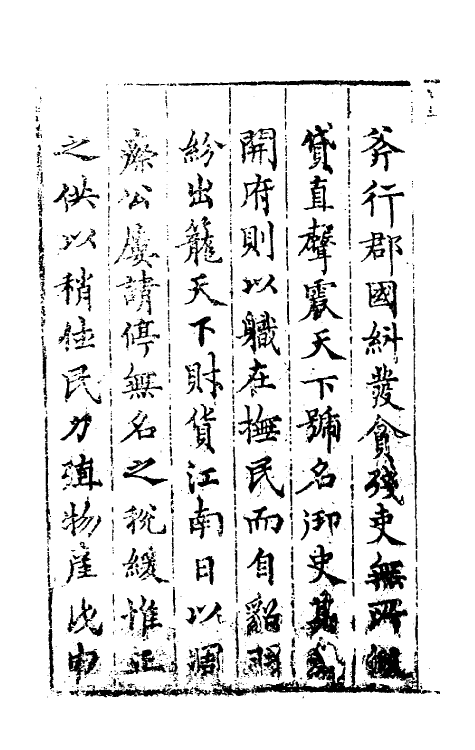 斧行郡國糾發貪殘吏無所假
貸直聲震天下號名御史其
開府則以職在撫民而自貂璫
紛出籠天下財貨江南日以凋
瘵公屢請停無名之稅緩惟正
之供以稍佐民力殖物產比申